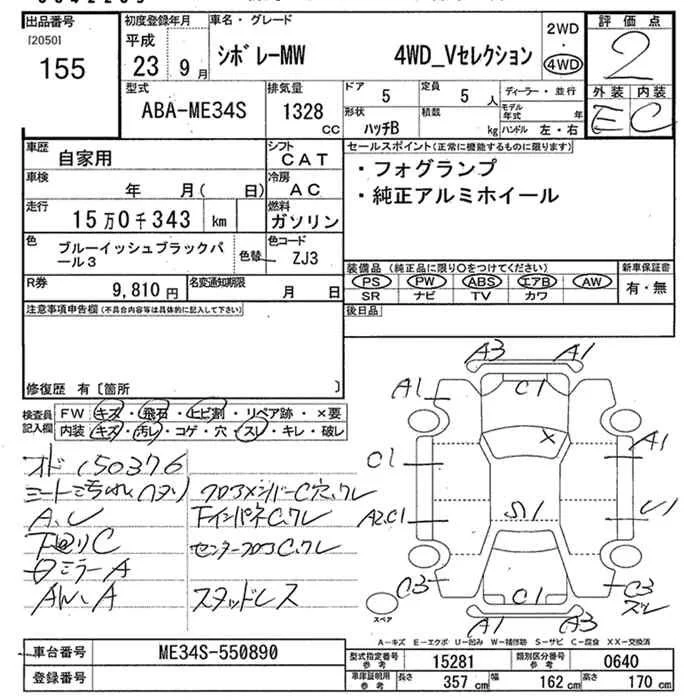 出品番号
[2050]
155
初度登録年月
平成
23 9月
車名・グレード
シボレーMW 4WD_Vセレクション
2WD
・
4WD
評価点
2
外装 内装
E C
型式
ABA-ME34S
排気量
1328
CC
ドア
5
定員
5 人
ディーラー・並行
形状
ハッチB
積数
kg
モデル年式 年
ハンドル 左・右
車歴
自家用
シフト
CAT
車検
年 月( 日)
冷房
AC
走行
15万0千343 km
燃料
ガソリン
色
ブルーイッシュブラックパ
ール3
色替
色コード
ZJ3
R券
9,810 円
名変通知期限
月 日
セールスポイント(正常に機能するものに限ります)
・フォグランプ
・純正アルミホイール
装備品 (純正品に限り○をつけてください)
PS PW ABS エアB AW
SR ナビ TV カワ
新車保証書
有・無
後日品
注意事項申告欄(不具合内容等は具体的に記入して下さい)
修復歴 有〔箇所 〕
検査員
記入欄
FW キズ・飛石・ヒビ割・リペア跡・×要
内装 キズ・汚レ・コゲ・穴・スレ・キレ・破レ
オド 150376
シート汚れ ヘタリ
フロアメンバーC穴、クレ
A、U
下インパネC、クレ
下回リC
センターフロアC、クレ
ロミラーA
AW、A
スタッドレス
A3 A1
A1 C1
X
C1 A1
A2,C1 S1 U1
C3 C1 C3
スレ
A1 A3
スペア
A-キズ E-エクボ U-凹み W-補修跡 S-サビ C-腐食 XX-交換済
車台番号
ME34S-550890
登録番号
型式指定番号
参考
15281
類別区分番号
参考
0640
車庫証明用
参考
長さ 357 cm
幅 162 cm
高さ 170 cm